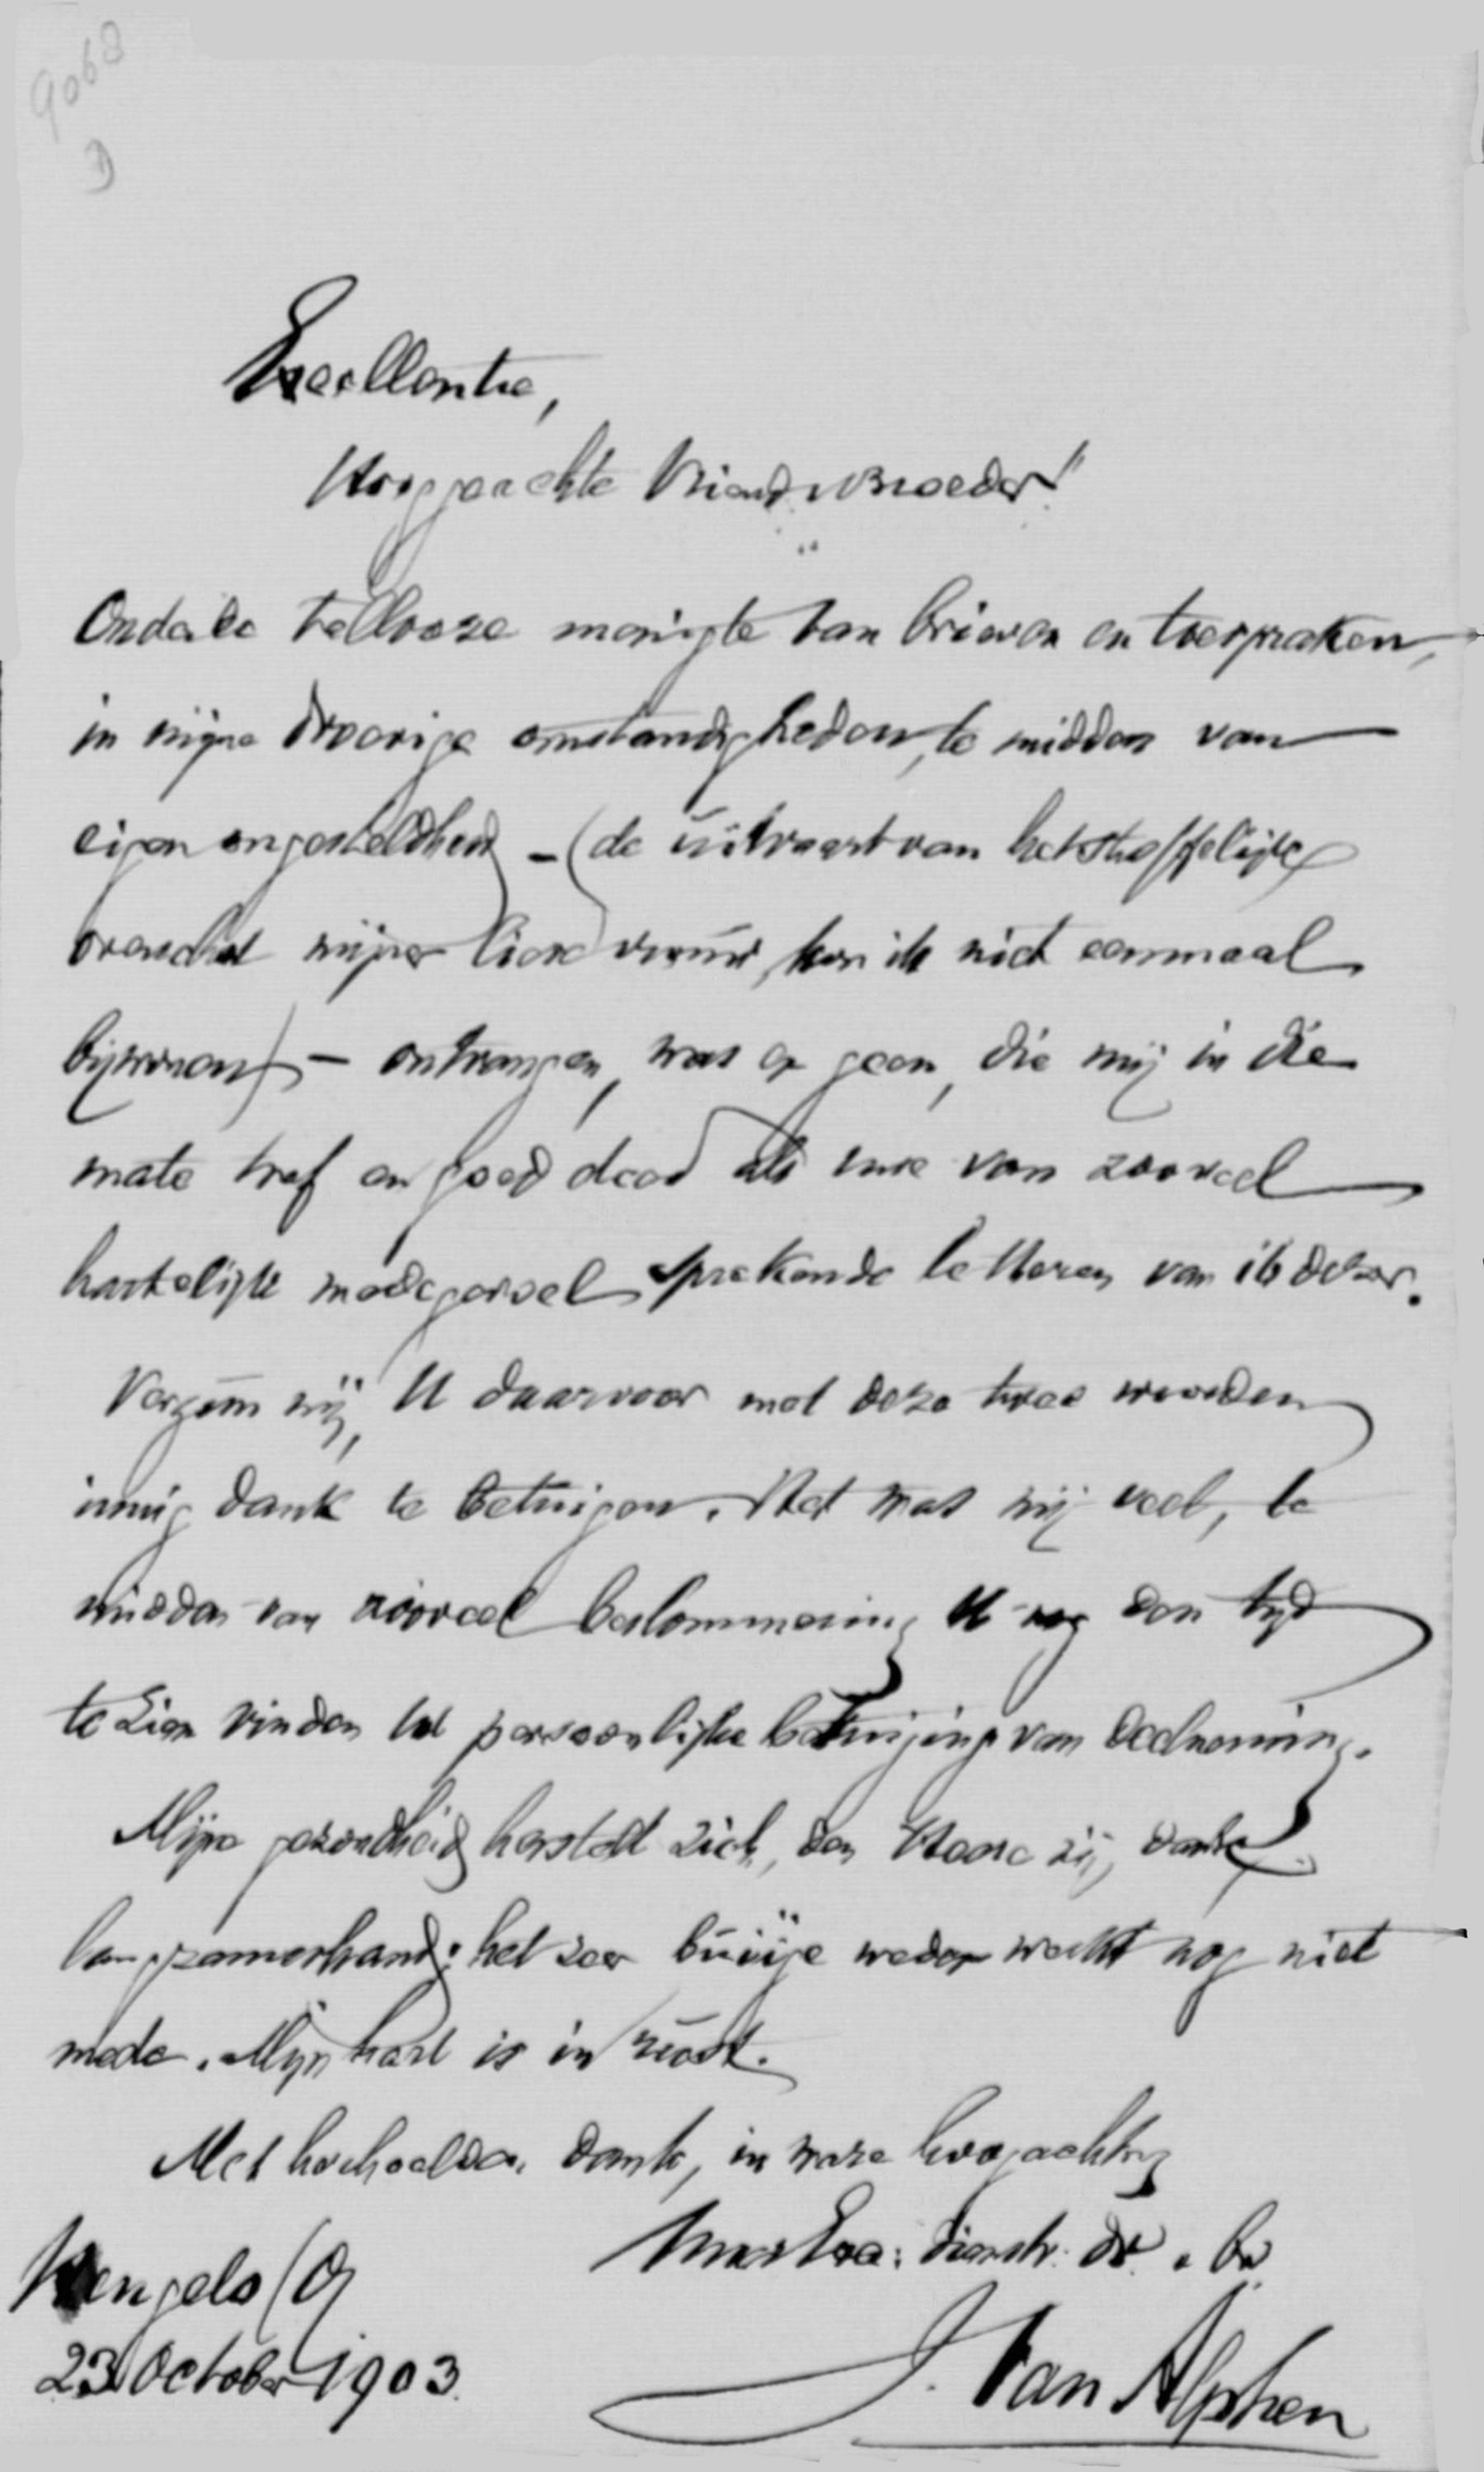 9063
D
Excellentie,
Hooggeachte Vriend en Broeder!
Onder de tallooze menigte van brieven en toespraken,
in mijne droevige omstandigheden, te midden van
eigen ongesteldheid – (de uitvaart van het stoffelijke
overschot mijner lieve vrouw, kon ik niet eenmaal
bijwonen) – ontvangen, was er geen, die mij in die
mate trof en goed deed als uwe van zooveel
hartelijk medegevoel sprekende letteren van 16 dezer.
Vergun mij, U daarvoor met deze twee woorden
innig dank te betuigen. Het was mij veel, te
midden van zooveel beslommering U nog den tijd
te zien vinden tot persoonlijke betuiging van deelneming.
Mijne gezondheid herstelt zich, den Heere zij dank
langzamerhand; het zeer buiige weder werkt nog niet
mede. Mijn hart is in rust.
Met herhaalden dank, in ware hoogachting
Uwe Exc: dienstv. dr. & br.
Hengelo (O)
23 October 1903.
J. Van Alphen